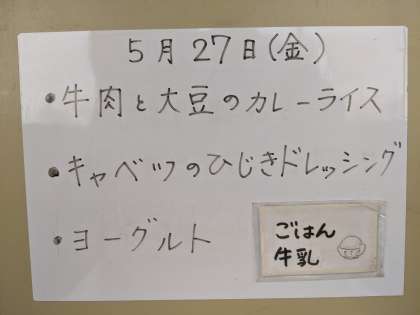 5月27日(金)
・牛肉と大豆のカレーライス
・キャベツのひじきドレッシング
・ヨーグルト
ごはん
牛乳